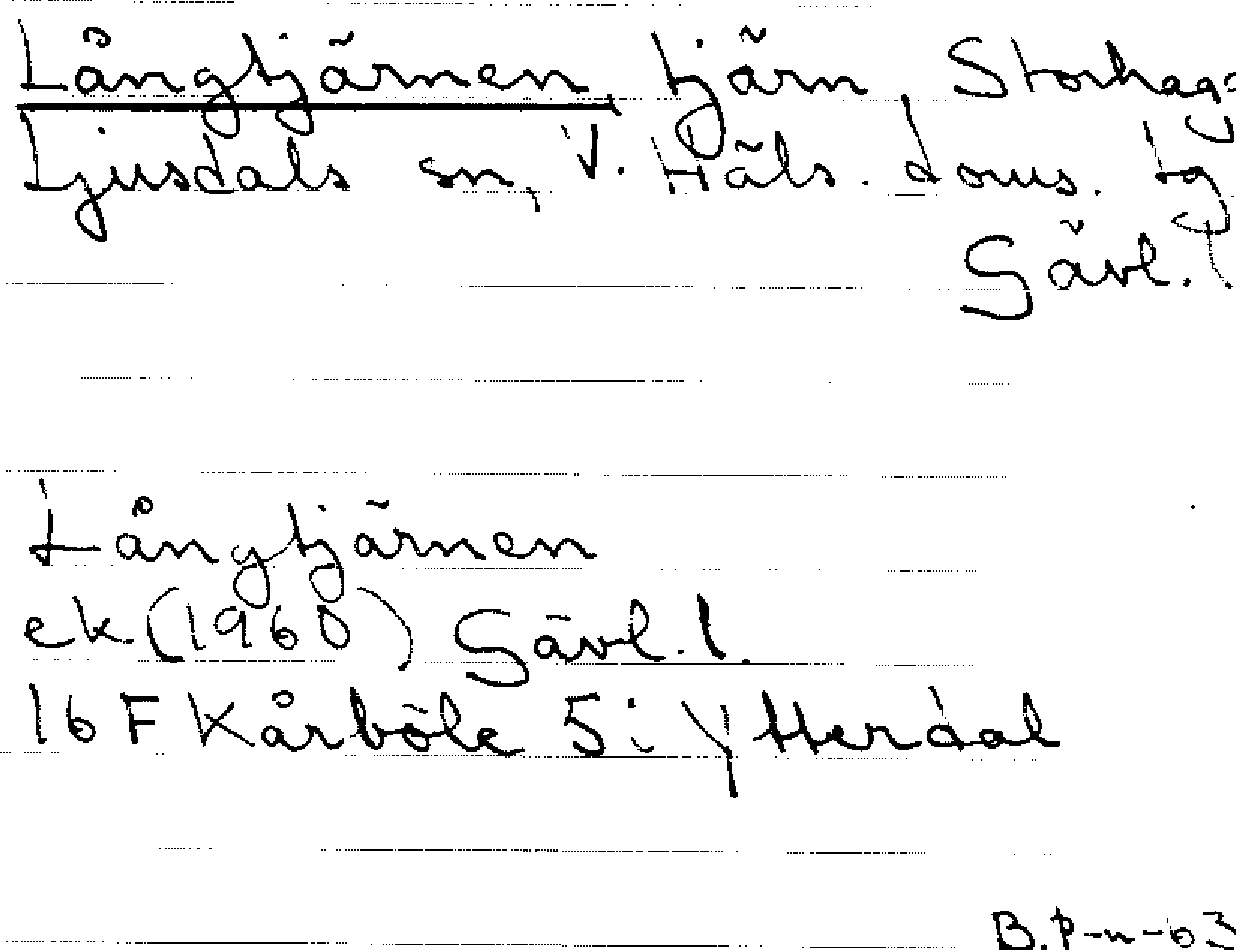 Långtjärnen, tjärn, Storhags
Ljusdals sn, V. Häls. doms. tg
Gävl. l.
Långtjärnen
ek (1960) Gävl. l.
16 F Kårböle 5: Ytterdal
B. P-n-63